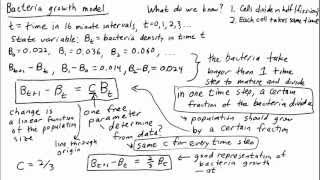 Bacteria growth model
What do we know?
1. Cells divide in half (fission)
2. Each cell takes same time
t = time in 16 minute intervals, t=0,1,2,3...
State variable: Bt = bacteria density in time t
B0 = 0.022, B1 = 0.036, B2 = 0.060, ...
B1 - B0 = 0.014, B2 - B1 = 0.024
the bacteria take
longer than 1 time
step to mature and divide
in one time step, a certain
fraction of the bacteria divide
Bt+1 - Bt = C Bt
population should grow
by a certain fraction
change is
a linear function
of the population
size
line through
origin
one free
parameter
determine
from data?
same c for every time step
C = 2/3
Bt+1 - Bt = 2/3 Bt
good representation of
bacteria growth